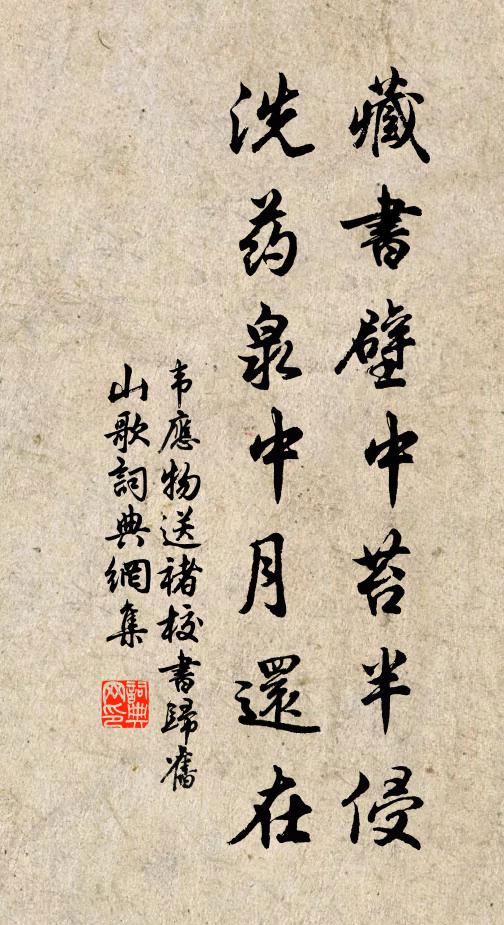 藏書壁中苔半侵
洗药泉中月還在
韦應物送褚校書歸舊
山歌詞典網集
詞典网印